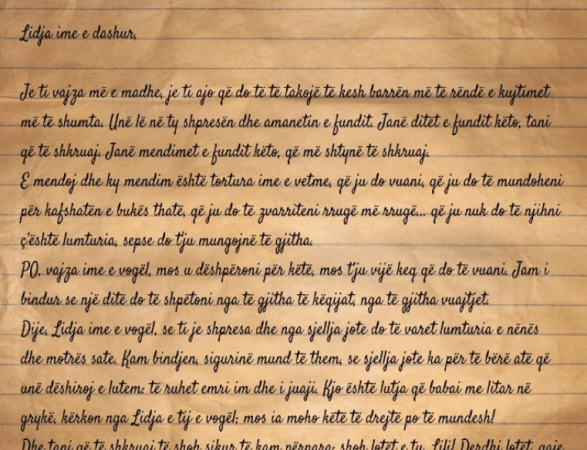 Lidja ime e dashur,
Je ti vajza më e madhe, je ti ajo që do të të takojë të kesh barrën më të rëndë e kujtimet
më të shumta. Unë lë në ty shpresën dhe amanetin e fundit. Janë ditet e fundit këto, tani
që të shkruaj. Janë mendimet e fundit këto, që më shtynë të shkruaj.
E mendoj dhe ky mendim është tortura ime e vetme, që ju do vuani, që ju do të mundoheni
për kafshatën e bukës thatë, që ju do të zvarriteni rrugë më rrugë... që ju nuk do të njihni
ç'është lumturia, sepse do t'ju mungojnë të gjitha.
PO, vajza ime e vogël, mos u dëshpëroni për këtë, mos t'ju vijë keq që do të vuani. Jam i
bindur se një ditë do të shpëtoni nga të gjitha të këqijat, nga të gjitha vuajtjet.
Dije, Lidja ime e vogël, se ti je shpresa dhe nga sjellja jote do të varet lumturia e nënës
dhe motrës sate. Kam bindjen, sigurinë mund të them, se sjellja jote ka për të bërë atë që
unë dëshiroj e lutem: të ruhet emri im dhe i juaji. Kjo është lutja që babai me litar në
grykë, kërkon nga Lidja e tij e vogël; mos ia moho këtë të drejtë po të mundesh!
Dhe tani që të shkruaj të shoh sikur të kam përpara; shoh lotët e tu, Lili! Derdhi lotët,